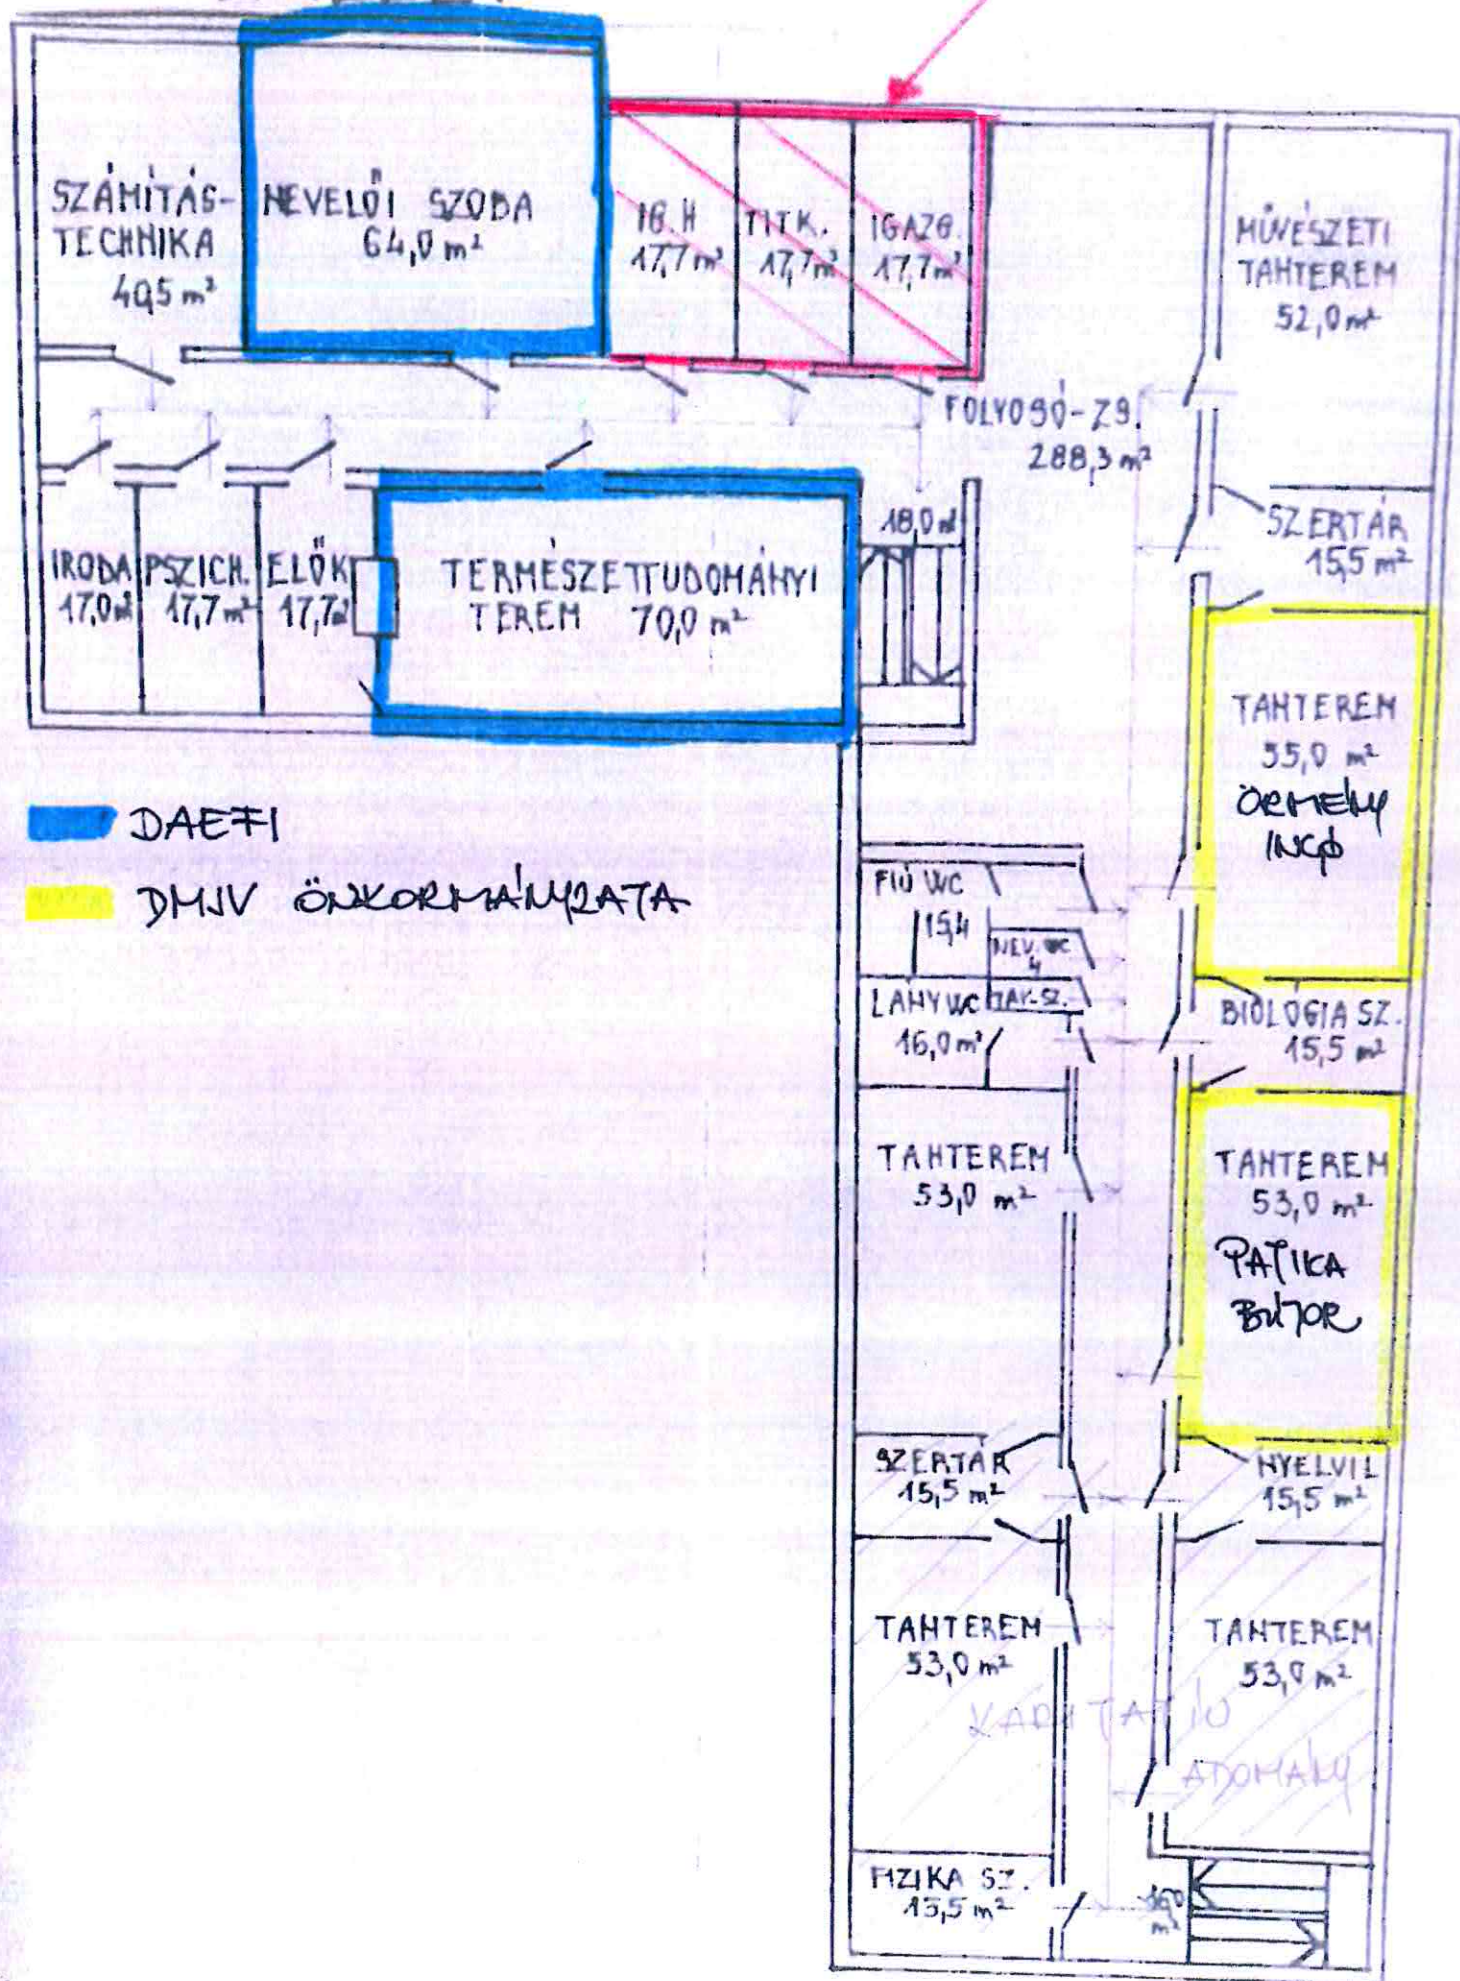 SZÁMÍTÁS-
TECHNIKA
40,5 m²
NEVELŐI SZOBA
64,0 m²
IG.H
17,7 m²
TITK.
17,7 m²
IGAZG.
17,7 m²
MŰVÉSZETI
TANTEREM
52,0 m²
FOLYOSÓ-ZS.
288,3 m²
SZERTÁR
15,5 m²
IRODA
17,0 m²
PSZICH.
17,7 m²
ELŐK
17,7 m²
TERMÉSZETTUDOMÁNYI
TEREM 70,0 m²
18,0 m²
TANTEREM
55,0 m²
ÖRMÉNY
INGÓ
DAEFI
DMJV ÖNKORMÁNYZATA
FIÚ WC
15,4
NEV. WC
4
LÁNY WC
TAK.SZ.
16,0 m²
BIOLÓGIA SZ.
15,5 m²
TANTEREM
53,0 m²
TANTEREM
53,0 m²
PATIKA
BÚTOR
SZERTÁR
15,5 m²
NYELVI L
15,5 m²
TANTEREM
53,0 m²
TANTEREM
53,0 m²
KARITATÍV
ADOMÁNY
FIZIKA SZ.
15,5 m²
16,0
m²